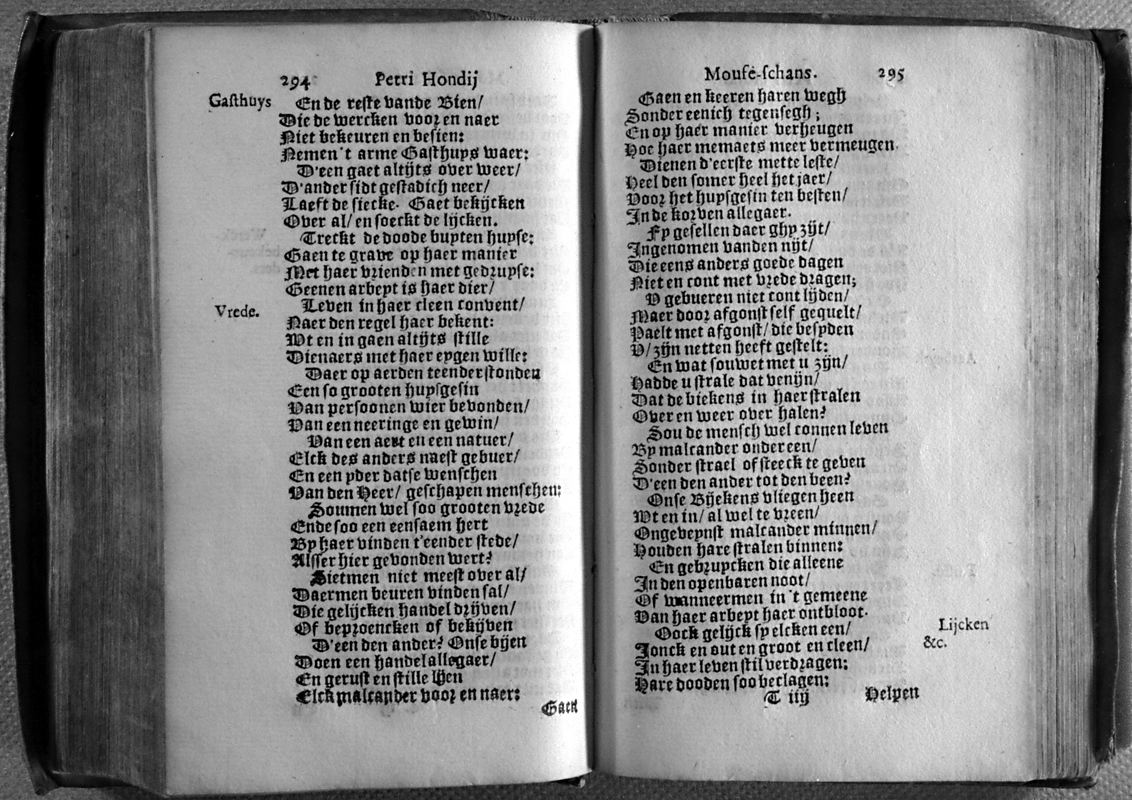 294 Petri Hondij
Gasthuys
En de reste vande Bien/
Die de wercken voor en naer
Niet bekeuren en besien:
Nemen 't arme Gasthuys waer:
D'een gaet altijts over weer/
D'ander sidt gestadich neer/
Laeft de siecke. Gaet bekijcken
Over al/ en soeckt de lijcken.
Treckt de doode buyten huyse:
Gaen te grave op haer manier
Met haer vrienden met gedruyse:
Geenen arbeyt is haer dier/
Vrede.
Leven in haer cleen convent/
Naer den regel haer bekent:
Wt en in gaen altijts stille
Dienaers met haer eygen wille:
Daer op aerden teender stonden
Een so grooten huysgesin
Van persoonen wier bevonden/
Van een neeringe en gewin/
Van een aert en een natuer/
Elck des anders naest gebuer/
En een yder datse wenschen
Van den Heer/ geschapen menschen:
Soumen wel soo grooten vrede
Ende soo een eensaem hert
By haer vinden t'eender stede/
Alsser hier gevonden wert?
Sietmen niet meest over al/
Daermen beuren vinden sal/
Die gelijcken handel drijven/
Of beproencken of bekijven
D'een den ander? Onse bijen
Doen een handel allegaer/
En gerust en stille
Elck malcander voor en naer:
Gaen
Mouse-schans. 295
Gaen en keeren haren wegh
Sonder eenich tegensegh;
En op haer manier verheugen
Hoe haer memaets meer vermeugen.
Dienen d'eerste mette leste/
Heel den somer heel het jaer/
Voor het huysgesin ten besten/
In de korven allegaer.
Fy gesellen daer ghy zijt/
Ingenomen vanden nijt/
Die eens anders goede dagen
Niet en cont met vrede dragen;
V gebueren niet cont lijden/
Maer door afgonst self gequelt/
Paelt met afgonst/ die besyden
V/ zijn netten heeft gestelt:
En wat souwet met u zijn/
Hadde u strale dat venijn/
Dat de biekens in haer stralen
Over en weer over halen?
Sou de mensch wel connen leven
By malcander onder een/
Sonder strael of steeck te geven
D'een den ander tot den been?
Onse Bijekens vliegen heen
Wt en in/ al wel te vreen/
Ongeveynst malcander minnen/
Houden hare stralen binnen:
En gebruycken die alleene
In den openbaren noot/
Of wanneermen in 't gemeene
Van haer arbeyt haer ontbloot.
Lijcken
&c.
Oock gelijck sy elcken een/
Jonck en out en groot en cleen/
In haer leven stil verdragen:
Hare dooden soo beclagen:
T iiij Helpen